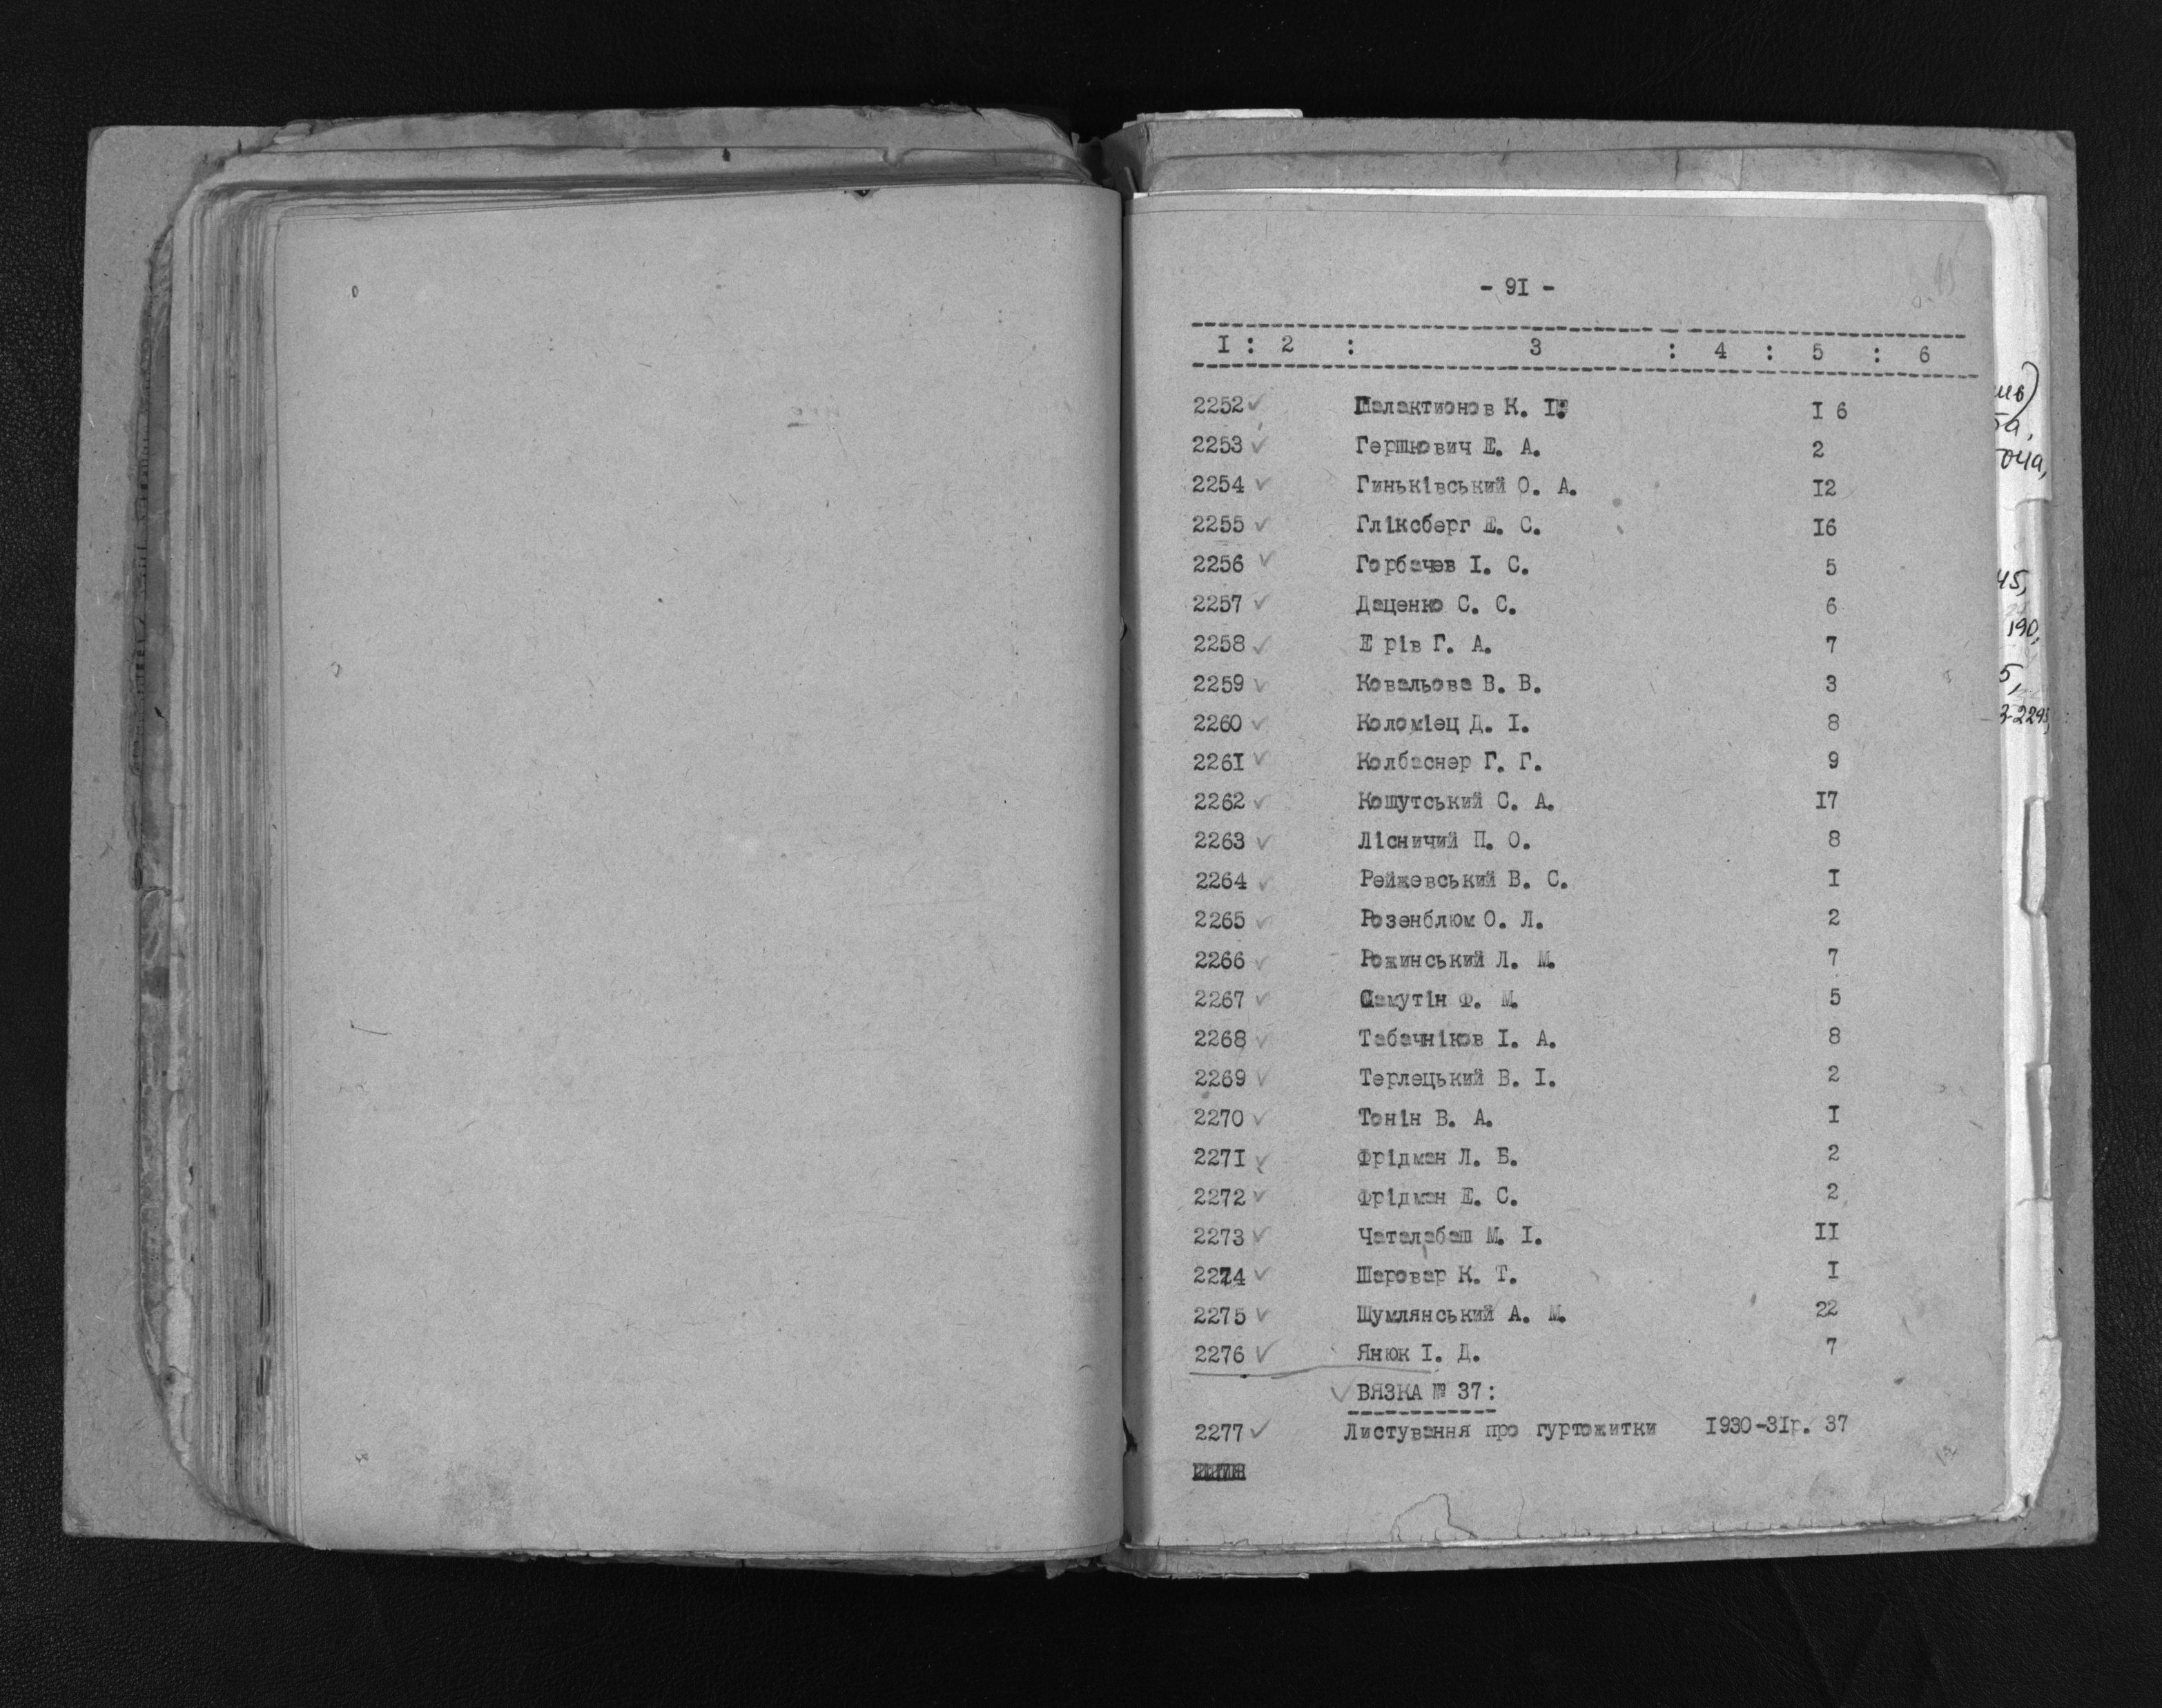 - 9I -
I : 2 : 3 : 4 : 5 : 6
2252 Галактионов К. І. I 6
2253 Гершкович Е. А. 2
2254 Гиньківський О. А. I2
2255 Гліксберг Е. С. I6
2256 Горбачев І. С. 5
2257 Даценко С. С. 6
2258 Е рів Г. А. 7
2259 Ковальова В. В. 3
2260 Коломіец Д. І. 8
226I Колбаснер Г. Г. 9
2262 Кошутський С. А. I7
2263 Лісничий П. О. 8
2264 Рейжевський В. С. I
2265 Розенблюм О. Л. 2
2266 Рожинський Л. М. 7
2267 Самутін Ф. М. 5
2268 Табачніков І. А. 8
2269 Терлецький В. І. 2
2270 Тонін В. А. I
227I Фрідман Л. Б. 2
2272 Фрідман Е. С. 2
2273 Чаталабаш М. І. II
2274 Шаровар К. Т. I
2275 Шумлянський А. М. 22
2276 Янюк І. Д. 7
ВЯЗКА № 37:
2277 Листування про гуртожитки I930-3Iр. 37
45,
190,
5,